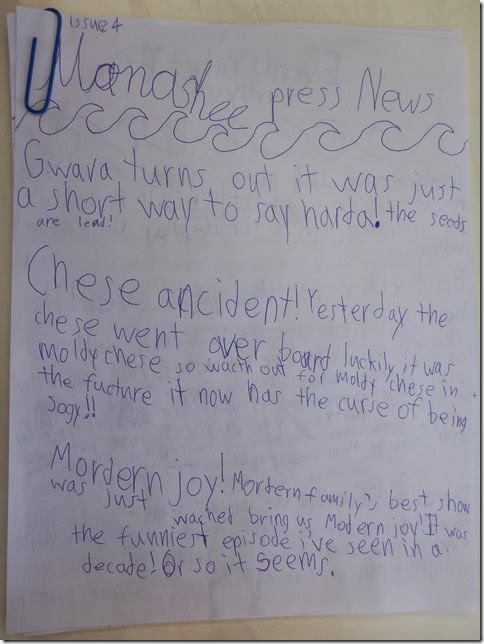 issue 4
Monashee press News
Gwava turns out it was just
a short way to say harda! the seeds
are lead!
Chese ancident! Yesterday the
chese went over board luckily it was
moldy chese so wacth out for moldy chese in
the fucture it now has the curse of being
sogy!!
Mordern joy! Mortern family's best show
was just wached bring us Modern joy! It was
the funniest episode i've seen in a
decade! Or so it seems.